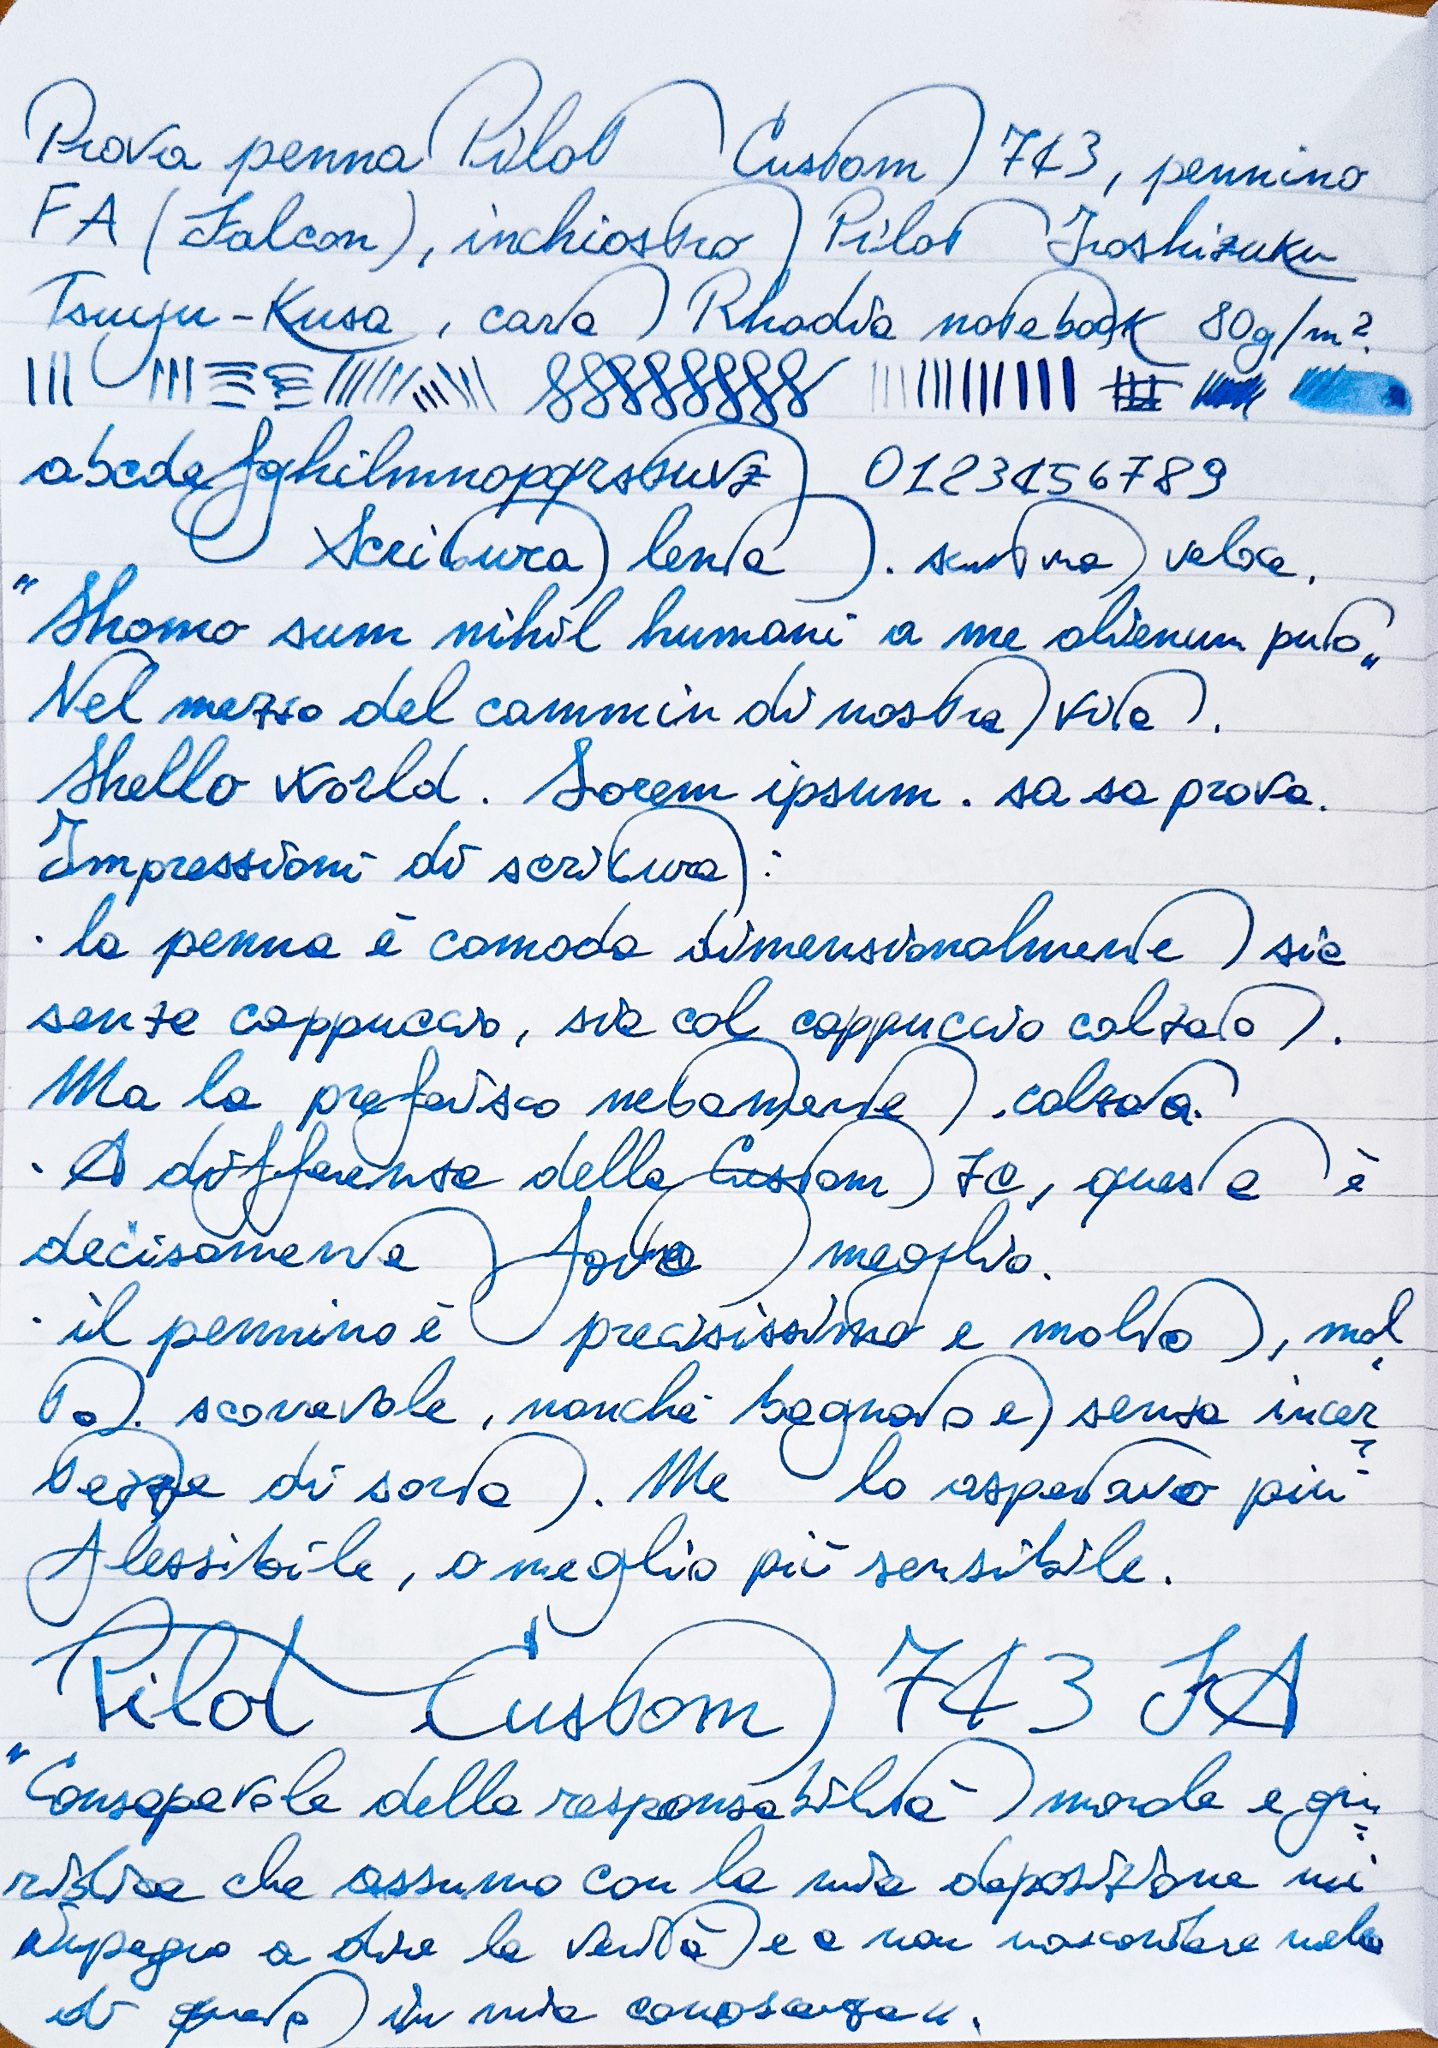 Prova penna Pilot Custom 743, pennino
FA (Falcon), inchiostro Pilot Iroshizuku
Tsuyu-Kusa, carta Rhodia notebook 80g/m².
abcdefghilmnopqrstuvz 0123456789
Scrittura lenta. scrittura veloce.
"Homo sum nihil humani a me alienum puto"
Nel mezzo del cammin di nostra vita.
Hello World. Lorem ipsum. sa sa prova.
Impressioni di scrittura:
· la penna è comoda dimensionalmente sia
senza cappuccio, sia col cappuccio calzato.
Ma la preferisco nettamente calzata.
· A differenza della Custom 74, questa è
decisamente molto meglio.
· il pennino è precisissimo e molto, mol
to. scorrevole, nonché bagnato e senza incer
tezze di sorta. Me lo aspettavo più
flessibile, o meglio più sensibile.
Pilot Custom 743 FA
"Consapevole della responsabilità morale e giu
ridica che assumo con la mia deposizione mi
impegno a dire la verità e a non nascondere nulla
di quanto in mia conoscenza".